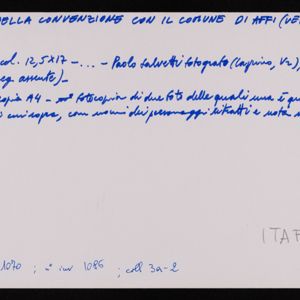 DELLA CONVENZIONE CON IL COMUNE DI AFFI (VE
col. 12,5x17 - ... - Paolo Salvetti fotografo (Caprino, Vr),
neg. assente) -
copia A4 - fotocopia di due foto delle quali una è qu
di cui sopra, con nomi dei personaggi ritratti e nota
ITAF
1070 ; n° inv 1086 ; coll 3a-2